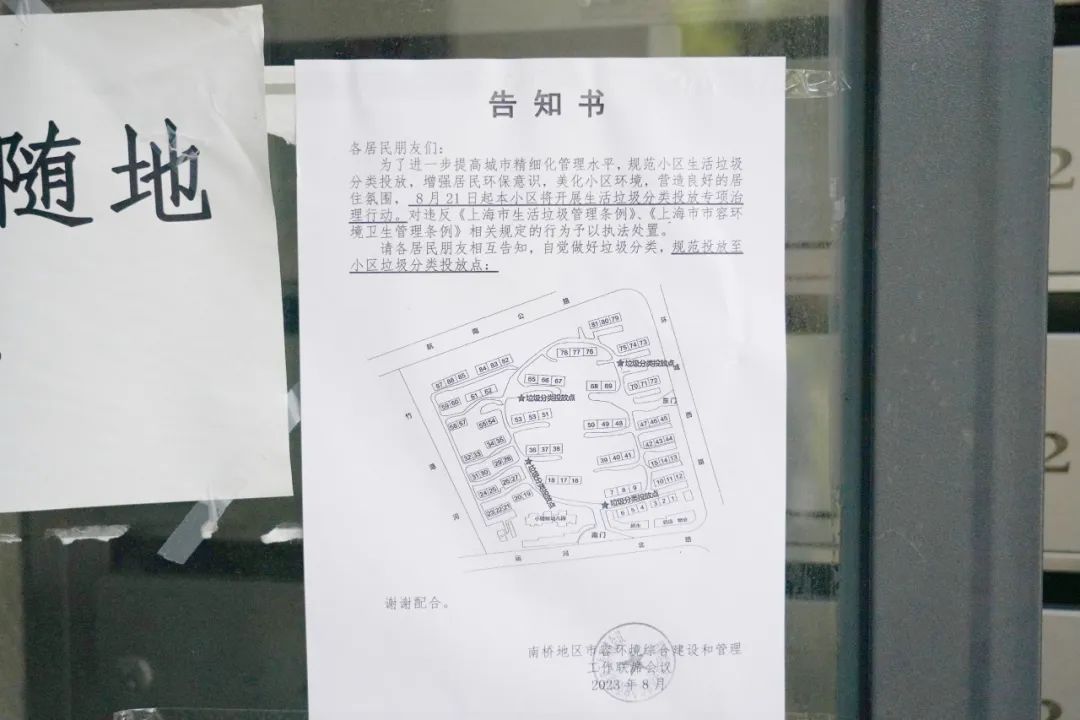 随地
告知书
各居民朋友们:
为了进一步提高城市精细化管理水平，规范小区生活垃圾
分类投放，增强居民环保意识，美化小区环境，营造良好的居
住氛围，8月21日起本小区将开展生活垃圾分类投放专项治
理行动。对违反《上海市生活垃圾管理条例》、《上海市市容环
境卫生管理条例》相关规定的行为予以执法处置。
请各居民朋友相互告知，自觉做好垃圾分类，规范投放至
小区垃圾分类投放点：
航南公路
环城西路
竹港河
运河北路
81 80 79
78 77 76
75 74 73
★垃圾分类投放点
84 83 82
87 86 85
65 66 67
68 69
70 71 72
61 62
59 60
★垃圾分类投放点
东门
56 57
55 54
52 53 51
50 49 48
47 46 45
34 35
42 43 44
32 33
36 37 38
39 40 41
29 28
15 14 13
31 30
★垃圾分类投放点
26 27
16 17 18
10 11 12
24 25
20 19
7 8 9
★垃圾分类投放点
23 22 21
6 5 4
3 2 1
南门
谢谢配合。
南桥地区市容环境综合建设和管理
工作联席会议
2023年8月
2
2